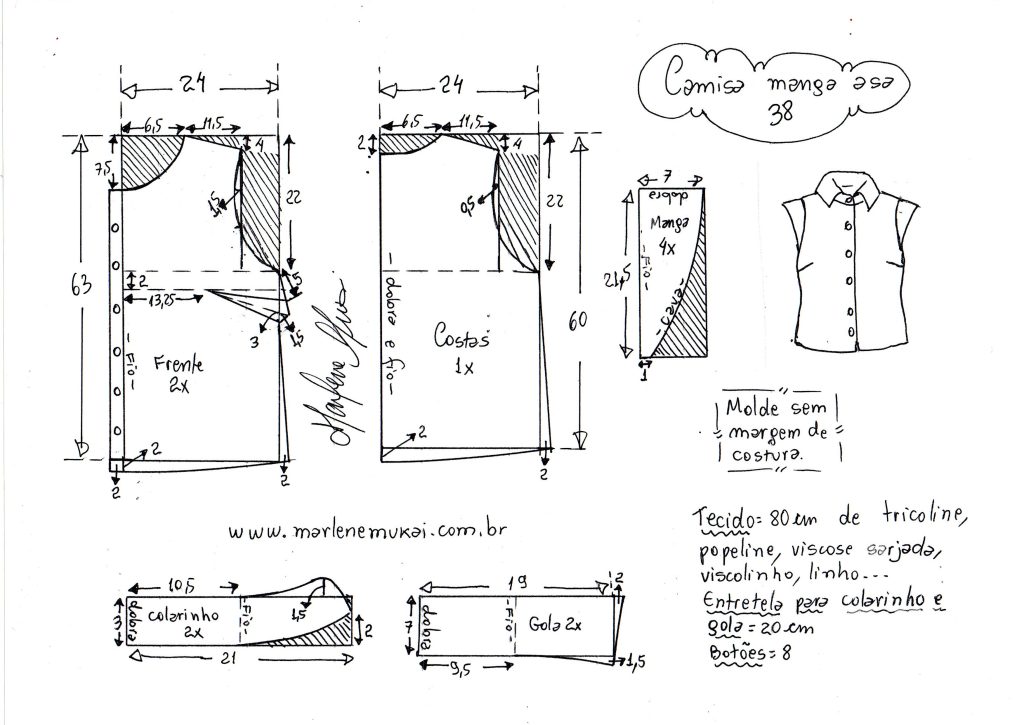 Camisa manga asa
38
24
6,5
11,5
4
7,5
1,5
22
63
2
13,25
1,5
3
1,5
- Fio -
Frente
2x
2
2
2
Marlene Mukai
24
6,5
11,5
2
4
0,5
22
60
- dobra e fio -
Costas
1x
2
2
7
dobra
Manga
4x
- Fio -
- cava -
21,5
1
Molde sem
margem de
costura.
www.marlenemukai.com.br
Tecido= 80 cm de tricoline,
popeline, viscose sarjada,
viscolinho, linho...
Entretela para colarinho e
gola = 20 cm
Botões= 8
10,5
3
dobra
colarinho
2x
- Fio -
1,5
2
21
19
2
7
dobra
- Fio -
Gola 2x
9,5
1,5